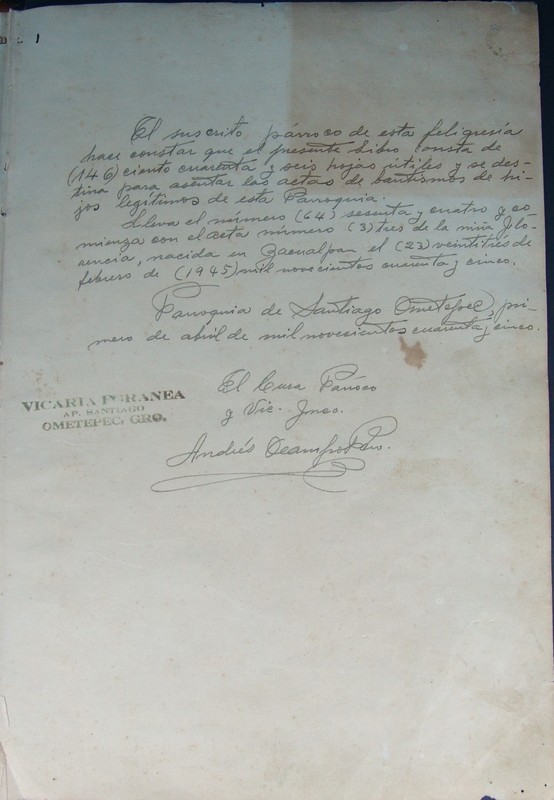 El suscrito, párroco de esta feligresía
hace constar que el presente Libro consta de
(146) ciento cuarenta y seis hojas útiles y se des-
tina para asentar las actas de bautismos de hi-
jos legítimos de esta Parroquia.
Lleva el número (64) sesenta y cuatro y co
mienza con el acta número (3) tres de la niña Flo-
rencia, nacida en Zacualpan el (23) veintitrés de
febrero de (1945) mil novecientos cuarenta y cinco.
Parroquia de Santiago Ometepec, pri-
mero de abril de mil novecientos cuarenta y cinco.
El Cura Párroco
y Vic.
Andrés Ocampo Pbro.
VICARIA FORANEA
AP. SANTIAGO
OMETEPEC, GRO.